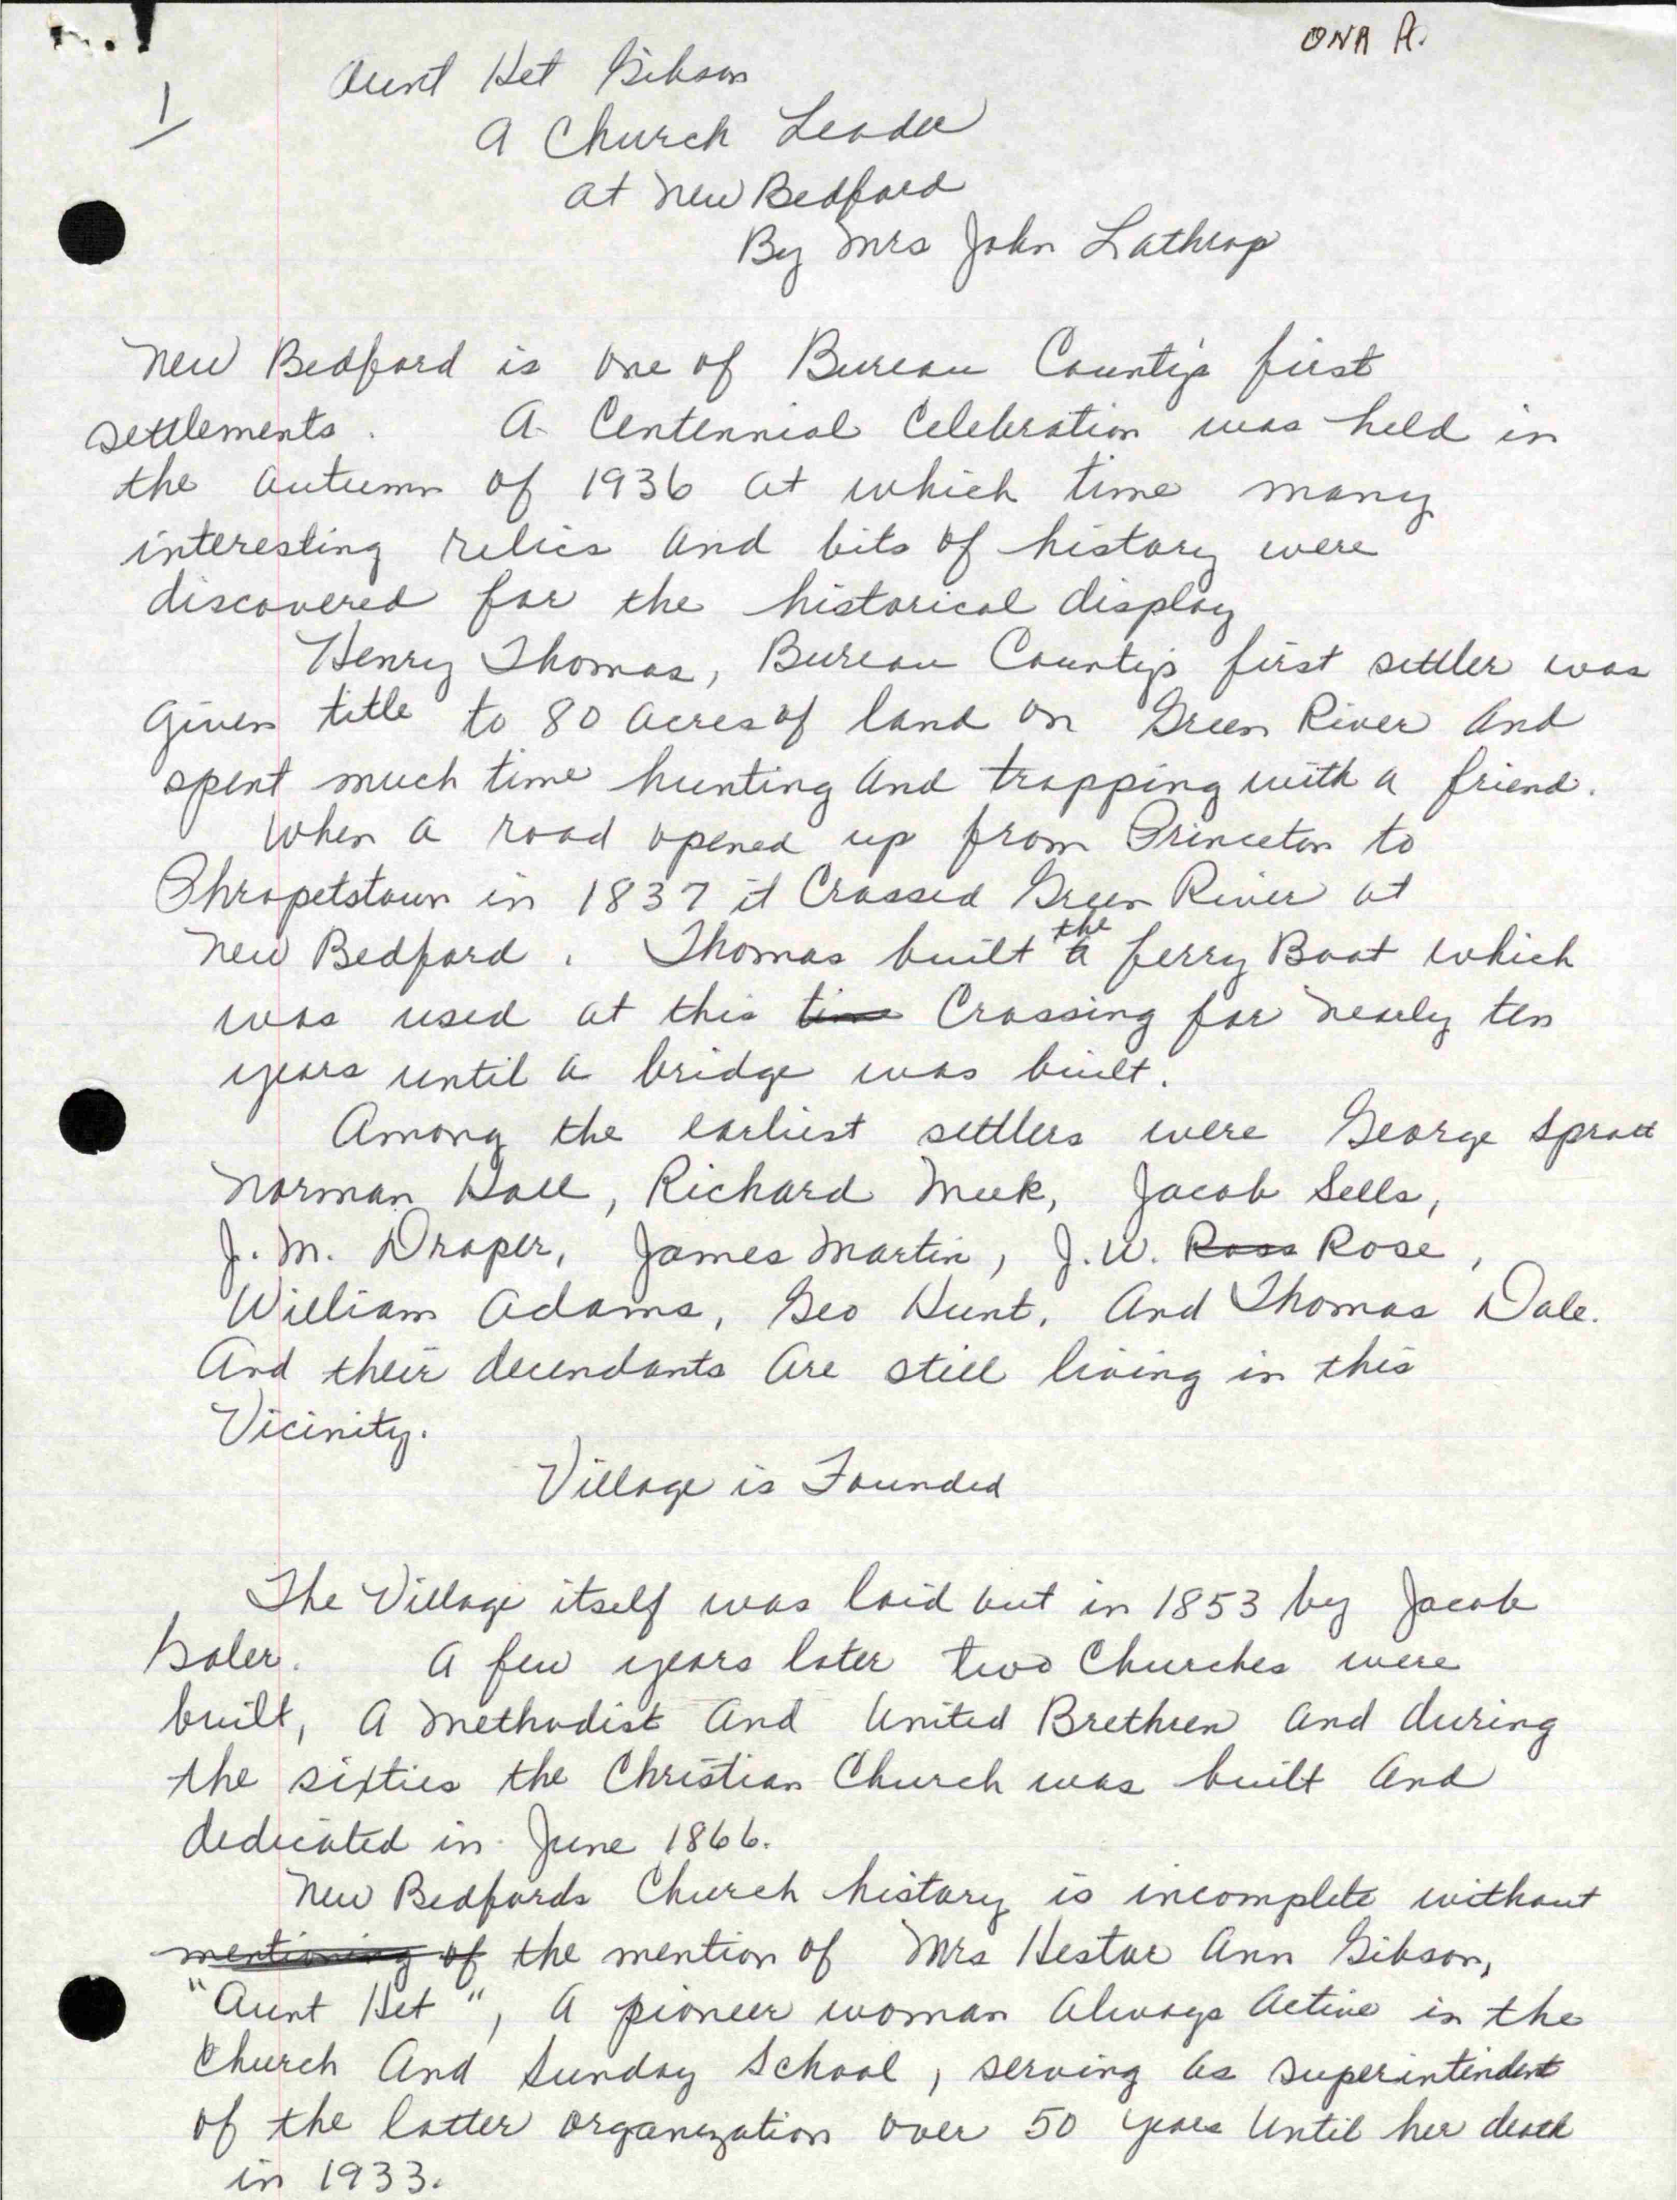 ONA A.
1
Aunt Het Gibson
A Church Leader
at New Bedford
By Mrs John Lathrop
New Bedford is one of Bureau County's first
settlements. A Centennial Celebration was held in
the autumn of 1936 at which time many
interesting relics and bits of history were
discovered for the historical display
Henry Thomas, Bureau County's first settler was
given title to 80 acres of land on Green River and
spent much time hunting and trapping with a friend.
When a road opened up from Princeton to
Phropetstown in 1837 it Crossed Green River at
the
New Bedford. Thomas built a ferry Boat which
was used at this time Crossing for nearly ten
years until a bridge was built.
Among the earliest settlers were George Spratt
Norman Hall, Richard Meek, Jacob Sells,
J. M. Draper, James Martin, J. W. Ross Rose,
William Adams, Geo Hunt, And Thomas Dale.
And their decendants are still living in this
Vicinity.
Village is Founded
The Village itself was laid out in 1853 by Jacob
. A few years later two Churches were
built, A Methodist And United Brethren and during
the sixties the Christian Church was built and
dedicated in June 1866.
New Bedfords Church history is incomplete without
mentioning of the mention of Mrs Hestor Ann Gibson,
"Aunt Het", A pioneer woman always active in the
Church And Sunday School, serving as superintendent
of the latter organization over 50 years until her death
in 1933.